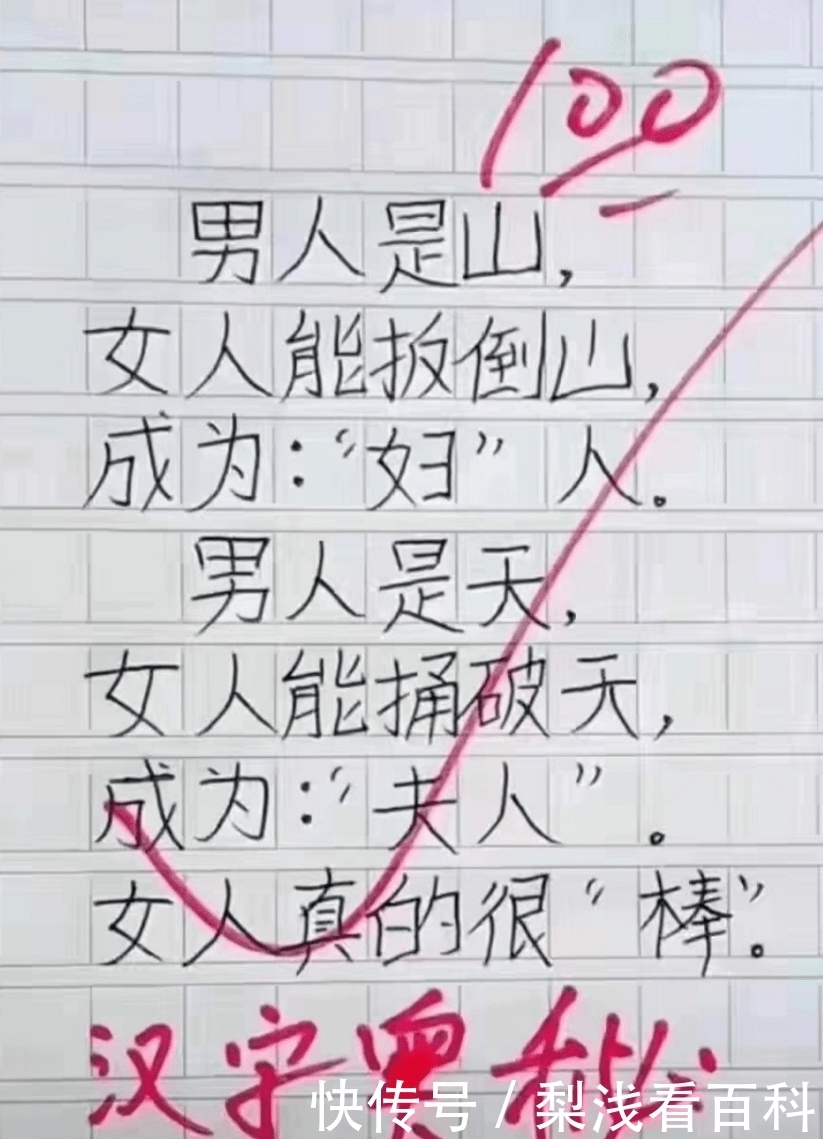 100
男人是山,
女人能扳倒山,
成为:“妇”人。
男人是天,
女人能捅破天,
成为:“夫人”。
女人真的很“棒”。
汉字奥秘
快传号/梨浅看百科